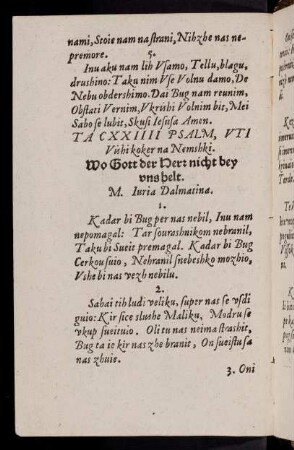 nami, Stoie nam na strani, Nihzhe nas ne-
premore.
5.
Inu aku nam lih Vsamo, Tellu, blagu,
drushino: Taku nim Vse Volnu damo, De
Nebu obdershimo. Dai Bug nam reunim,
Obstati Vernim, Vkrishi Volnim bit, Mei
Sabo se lubit, Skusi Iesusa Amen.
TA CXXIIII PSALM, VTI
Vishi koker na Nemshki.
Wo Gott der Herr nicht bey
vns helt.
M. Iuria Dalmatina.
1.
Kadar bi Bug per nas nebil, Inu nam
nepomagal: Tar sourashnikom nebranil,
Taku bi Sueit premagal. Kadar bi Bug
Cerkou suio, Nehranil snebeshko mozhio,
Vshe bi nas vezh nebilu.
2.
Sabai tih ludi veliku, super nas se vsdi
guio: Kir sice slushe Maliku, Modru se
vkup sueituio. Oli tu nas neima strashit,
Bug ta ie kir nas zhe branit, On sueistu sa
nas zhuie.
3. Oni